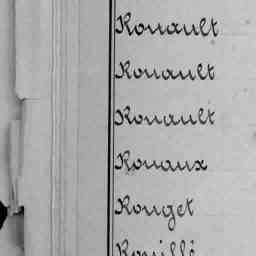 Rouault
Rouault
Rouault
Rouaux
Rouget
Rouillé